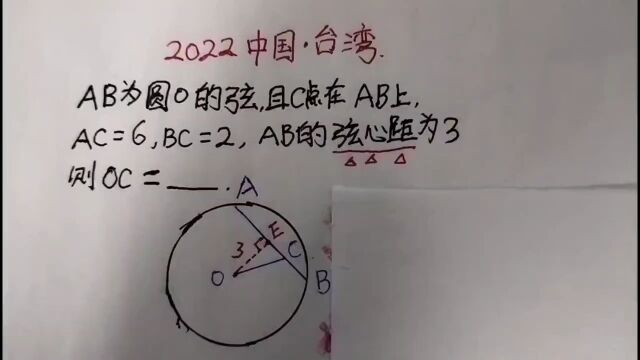 2022中国·台湾.
AB为圆O的弦,且C点在AB上,
AC=6,BC=2, AB的弦心距为3
则OC=____.
A
E
3
C
O
B